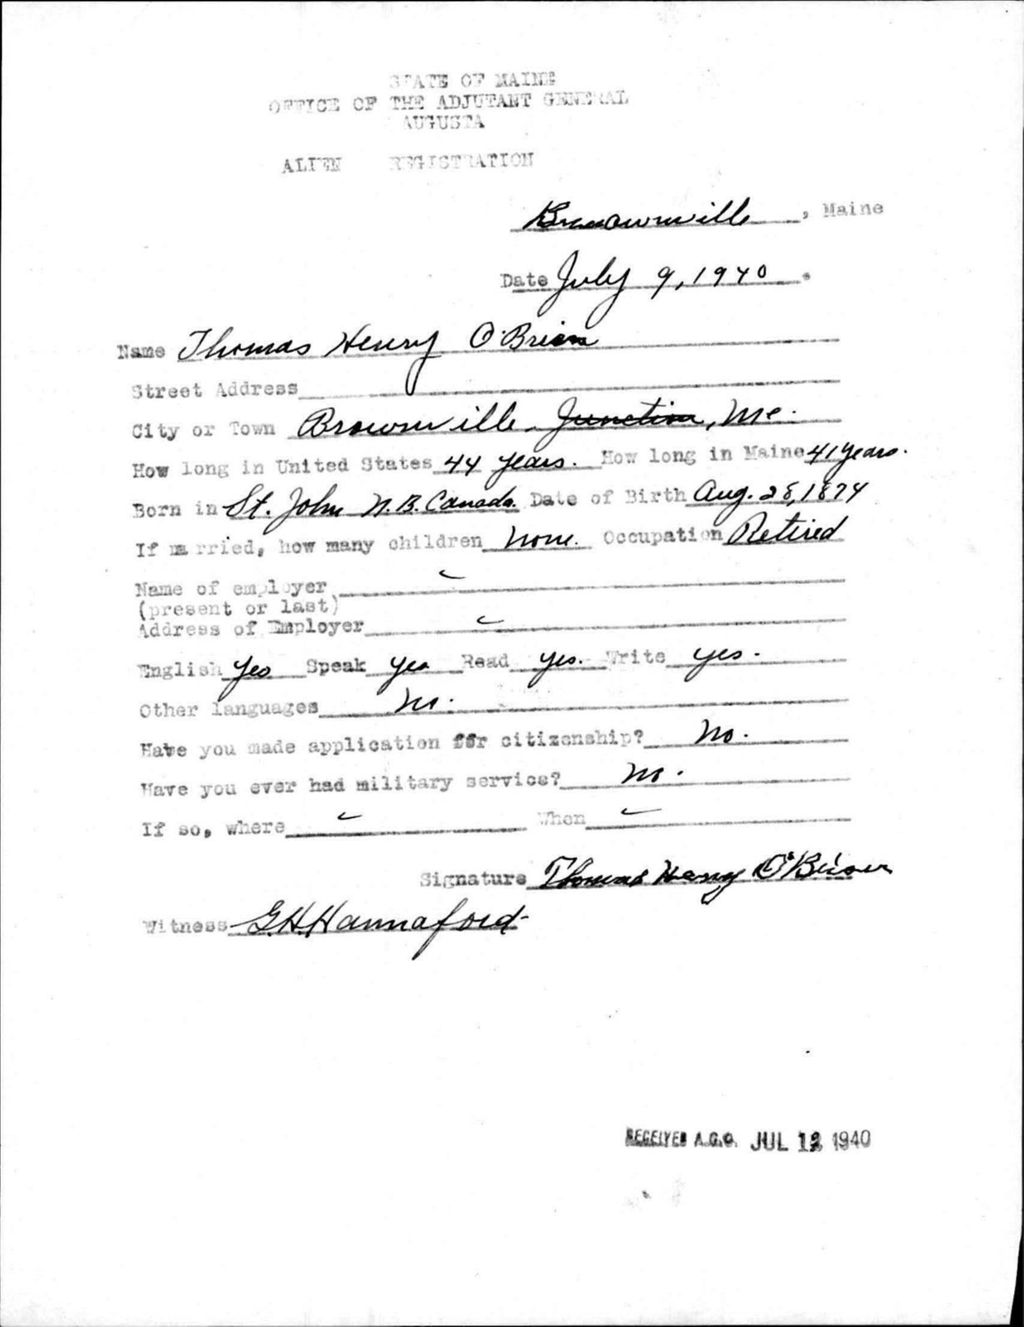 STATE OF MAINE
OFFICE OF THE ADJUTANT GENERAL
AUGUSTA
ALIEN REGISTRATION
Brownville, Maine
Date July 9, 1940.
Name Thomas Henry O'Brien
Street Address
City or Town Brownville Junction, Me.
How long in United States 44 years. How long in Maine 41 years.
Born in St. John N.B. Canada. Date of Birth Aug. 28, 1874
If married, how many children None. Occupation Retired
Name of employer
(present or last)
Address of Employer
English Yes Speak Yes Read Yes. Write Yes.
Other languages No.
Have you made application for citizenship? No.
Have you ever had military service? No.
If so, where When
Signature Thomas Henry O'Brien
Witness G.H. Hannaford
RECEIVED A.G.O. JUL 12 1940